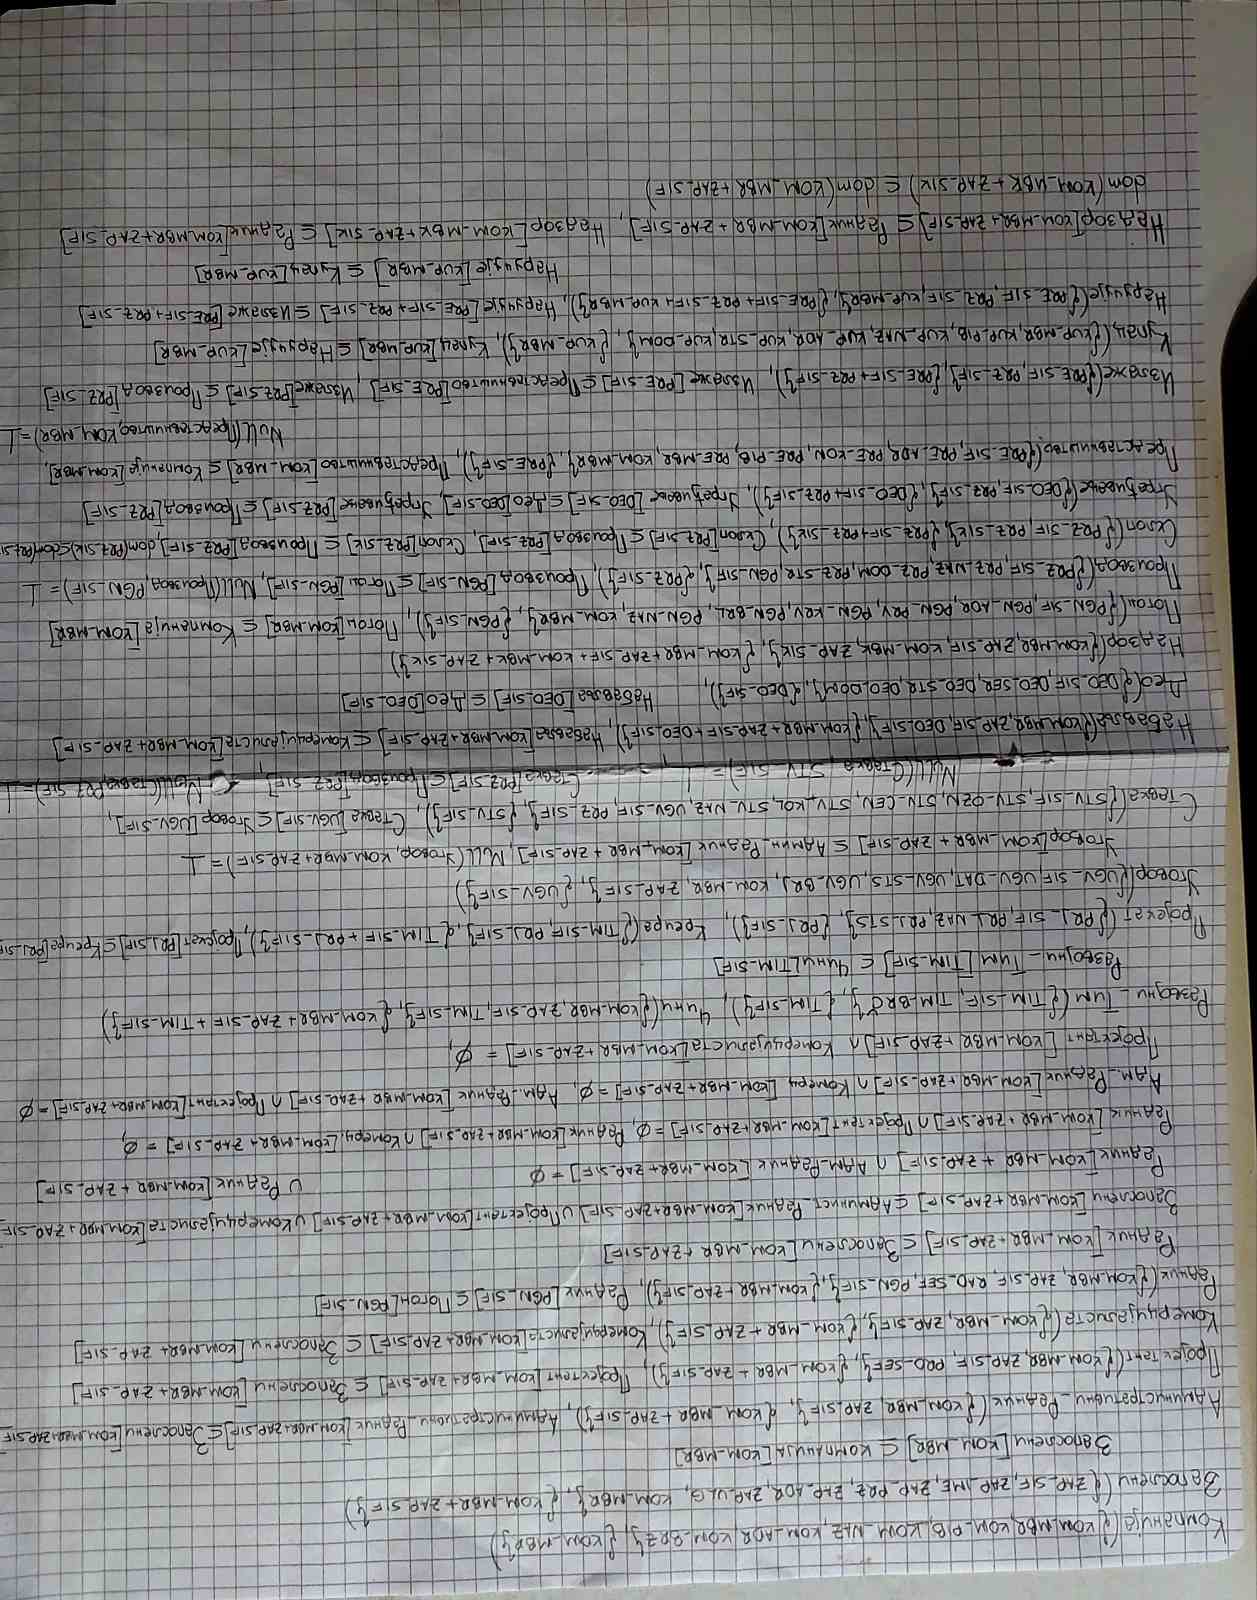 Компанија({KOM_MBR, KOM_PIB, KOM_NAZ, KOM_ADR, KOM_BRZ}, {KOM_MBR})
Запослени({ZAP_SIF, ZAP_IME, ZAP_PRZ, ZAP_ADR, ZAP_ULG, KOM_MBR}, {KOM_MBR+ZAP_SIF})
Запослени[KOM_MBR] ⊆ КОМПАНИЈА[KOM_MBR]
Административни_Радник({KOM_MBR, ZAP_SIF}, {KOM_MBR + ZAP_SIF}), Административни_Радник[KOM_MBR+ZAP_SIF] ⊆ Запослени[KOM_MBR+ZAP_SIF
Пројектант({KOM_MBR, ZAP_SIF, PRO_SEF}, {KOM_MBR + ZAP_SIF}), Пројектант[KOM_MBR+ZAP_SIF] ⊆ Запослени[KOM_MBR+ ZAP_SIF]
Комерцијалиста({KOM_MBR, ZAP_SIF}, {KOM_MBR+ZAP_SIF}), Комерцијалиста[KOM_MBR+ZAP_SIF] ⊆ Запослени[KOM_MBR+ ZAP_SIF]
Радник({KOM_MBR, ZAP_SIF, RAD_SEF, PGN_SIF}, {KOM_MBR+ZAP_SIF}), Радник[PGN_SIF] ⊆ Погон[PGN_SIF]
Радник[KOM_MBR+ZAP_SIF] ⊆ Запослени[KOM_MBR +ZAP_SIF]
Запослени[KOM_MBR+ZAP_SIF] ⊆ Админист_Радник[KOM_MBR+ZAP_SIF] ∪ Пројектант[KOM_MBR+ZAP_SIF] ∪ Комерцијалиста[KOM_MBR+ZAP_SIF
∪ Радник[KOM_MBR + ZAP_SIF]
Радник[KOM_MBR + ZAP_SIF] ∩ Адм_Радник [KOM_MBR+ ZAP_SIF] = ∅
Радник [KOM_MBR+ZAP_SIF] ∩ Пројектант[KOM_MBR+ZAP_SIF] = ∅, Радник[KOM_MBR+ZAP_SIF] ∩ Комерц.[KOM_MBR+ ZAP_SIF] = ∅,
Адм._Радник[KOM_MBR+ZAP_SIF] ∩ Комерц [KOM_MBR+ZAP_SIF] = ∅, Адм._Радник [KOM_MBR +ZAP_SIF] ∩ Пројектант[KOM_MBR+ZAP_SIF] = ∅
Пројектант [KOM_MBR +ZAP_SIF] ∩ Комерцијалиста[KOM_MBR +ZAP_SIF] = ∅,
Развојни_Тим({TIM_SIF, TIM_BRČ}, {TIM_SIF}), Чини({KOM_MBR, ZAP_SIF, TIM_SIF}, {KOM_MBR+ ZAP_SIF + TIM_SIF})
Развојни_Тим [TIM_SIF] ⊆ Чини[TIM_SIF]
Пројекат({PRJ_SIF, PRJ_NAZ, PRJ_STS}, {PRJ_SIF}), Креира({TIM_SIF, PRJ_SIF}, {TIM_SIF + PRJ_SIF}), Пројекат[PRJ_SIF] ⊆ Креира[PRJ_SIF
Уговор({UGV_SIF, UGV_DAT, UGV_STS, UGV_BRJ, KOM_MBR, ZAP_SIF}, {UGV_SIF})
Уговор[KOM_MBR + ZAP_SIF] ⊆ Админ_Радник[KOM_MBR + ZAP_SIF], Null(Уговор, KOM_MBR+ZAP_SIF) = ⊥
Ставка({STV_SIF, STV_OZN, STV_CEN, STV_KOL, STV_NAZ, UGV_SIF, PRZ_SIF}, {STV_SIF}), Ставка[UGV_SIF] ⊆ Уговор[UGV_SIF],
Null(Ставка, STV_SIF) = ⊥, Ставка[PRZ_SIF] ⊆ Производ[PRZ_SIF], Null(Ставка, PRZ_SIF) = ⊥
Набавља({KOM_MBR, ZAP_SIF, DEO_SIF}, {KOM_MBR+ ZAP_SIF+DEO_SIF}), Набавља[KOM_MBR+ZAP_SIF] ⊆ Комерцијалиста[KOM_MBR+ ZAP_SIF]
Део({DEO_SIF, DEO_SER, DEO_STR, DEO_DOM}, {DEO_SIF}), Набавља[DEO_SIF] ⊆ Део[DEO_SIF]
Надзор({KOM_MBR, ZAP_SIF, KOM_MBK, ZAP_SIK}, {KOM_MBR+ZAP_SIF+ KOM_MBK + ZAP_SIK})
Погон({PGN_SIF, PGN_ADR, PGN_PRV, PGN_KRV, PGN_BRL, PGN_NAZ, KOM_MBR}, {PGN_SIF}), Погон[KOM_MBR] ⊆ Компанија[KOM_MBR]
Производ({PRZ_SIF, PRZ_NAZ, PRZ_DOM, PRZ_STR, PGN_SIF}, {PRZ_SIF}), Производ[PGN_SIF] ⊆ Погон[PGN_SIF], Null(Производ, PGN_SIF) = ⊥
Склоп({PRZ_SIF, PRZ_SIK}, {PRZ_SIF+PRZ_SIK}), Склоп[PRZ_SIF] ⊆ Производ[PRZ_SIF], Склоп[PRZ_SIK] ⊆ Производ[PRZ_SIF], dom(PRZ_SIK) ⊆ dom(PRZ_SI
Уграђивање({DEO_SIF, PRZ_SIF}, {DEO_SIF+PRZ_SIF}), Уграђивање[DEO_SIF] ⊆ Део[DEO_SIF], Уграђивање[PRZ_SIF] ⊆ Производ[PRZ_SIF]
Представништво({PRE_SIF, PRE_ADR, PRE_KON, PRE_PIB, PRE_MBR, KOM_MBR}, {PRE_SIF}), Представништво[KOM_MBR] ⊆ Компанија[KOM_MBR],
Null(Представништво, KOM_MBR) = ⊥
Излаже({PRE_SIF, PRZ_SIF}, {PRE_SIF+PRZ_SIF}), Излаже[PRE_SIF] ⊆ Представништво[PRE_SIF], Излаже[PRZ_SIF] ⊆ Производ[PRZ_SIF]
Купац({KUP_MBR, KUP_PIB, KUP_NAZ, KUP_ADR, KUP_STR, KUP_DOM}, {KUP_MBR}), Купац[KUP_MBR] ⊆ Наручује[KUP_MBR]
Наручује({PRE_SIF, PRZ_SIF, KUP_MBR}, {PRE_SIF+ PRZ_SIF+ KUP_MBR}), Наручује[PRE_SIF+ PRZ_SIF] ⊆ Излаже[PRE_SIF+ PRZ_SIF]
Наручује[KUP_MBR] ⊆ Купац[KUP_MBR]
Надзор[KOM_MBR+ ZAP_SIF] ⊆ Радник[KOM_MBR + ZAP_SIF], Надзор[KOM_MBK+ZAP_SIK] ⊆ Радник[KOM_MBR+ZAP_SIF]
dom(KOM_MBK + ZAP_SIK) ⊆ dom(KOM_MBR+ZAP_SIF)